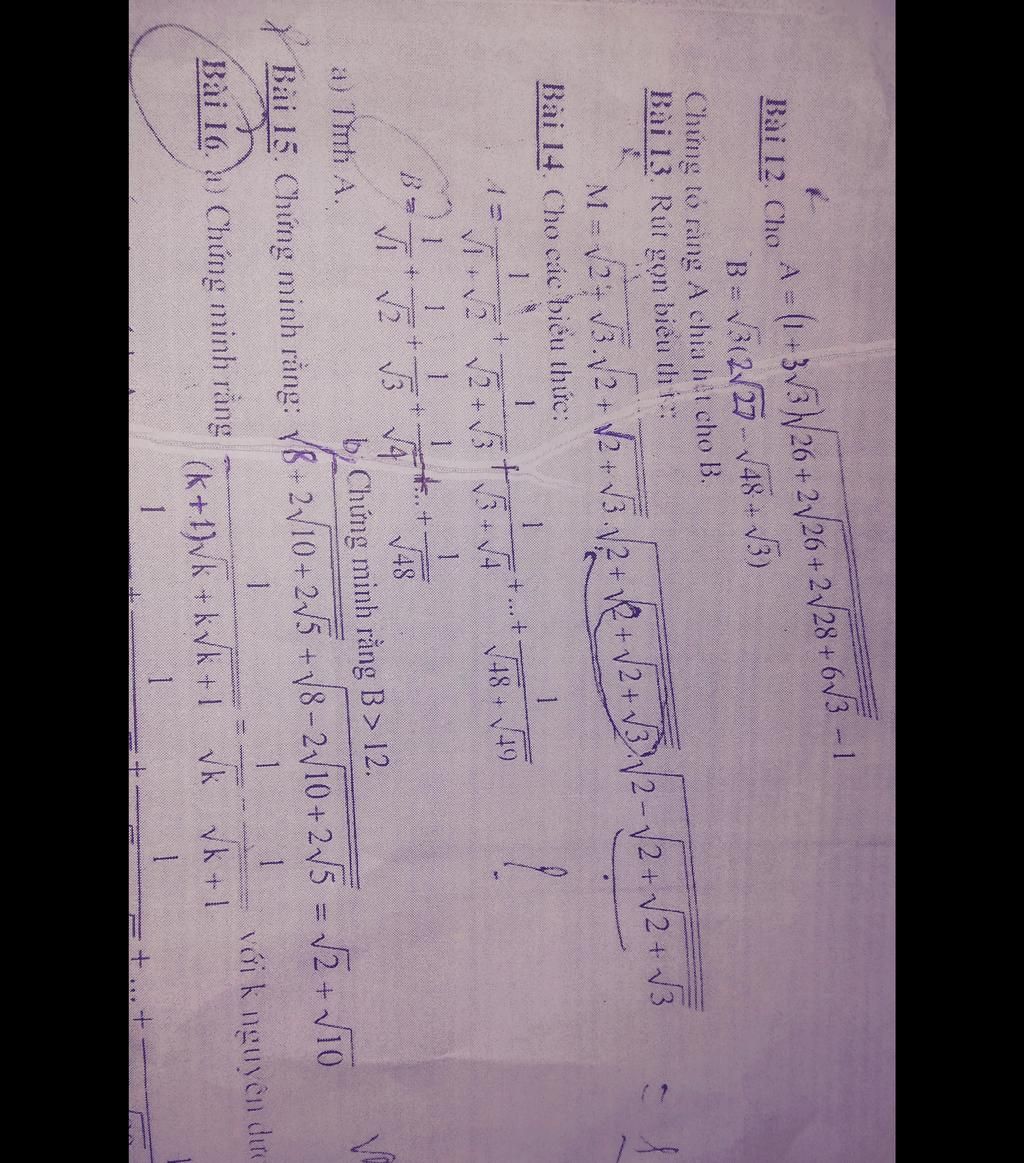 Bài 12. Cho A = (1 + 3√3)√(26 + 2√(26 + 2√(28 + 6√3))) − 1
B = √3(2√27 − √48 + √3)
Chứng tỏ rằng A chia hết cho B.
Bài 13. Rút gọn biểu thức:
M = √(2 + √3).√(2 + √(2 + √3)).√(2 + √(2 + √(2 + √3))).√(2 − √(2 + √(2 + √3)))
Bài 14. Cho các biểu thức:
A = 1/(√1 + √2) + 1/(√2 + √3) + 1/(√3 + √4) + ... + 1/(√48 + √49)
B = 1/√1 + 1/√2 + 1/√3 + 1/√4 + ... + 1/√48
a) Tính A. b. Chứng minh rằng B > 12.
Bài 15. Chứng minh rằng: √(8 + 2√(10 + 2√5)) + √(8 − 2√(10 + 2√5)) = √2 + √10
Bài 16. a) Chứng minh rằng 1/((k+1)√k + k√(k + 1)) = 1/√k − 1/√(k + 1) với k nguyên